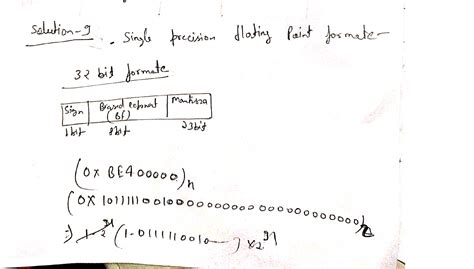 Solution-9 . Single precision floating Point formate-
32 bit formate
Sign Biased exponent (BE) Mantissa
1bit 8bit 23bit
(0X BE400000)n
(0X 1011111001000000000000000000000)2
(1.0111110010 ) x2^31